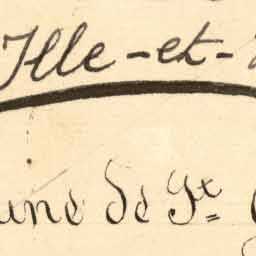 Ille-et-
une de St